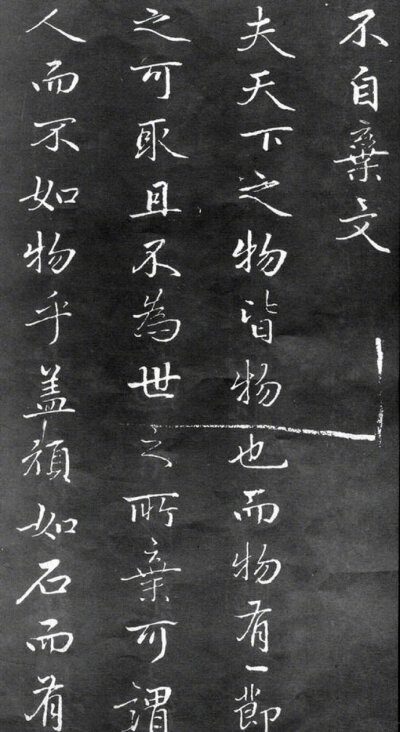 不自棄文
夫天下之物皆物也而物有一節
之可取且不為世之所棄可謂
人而不如物乎盖頑如石而有